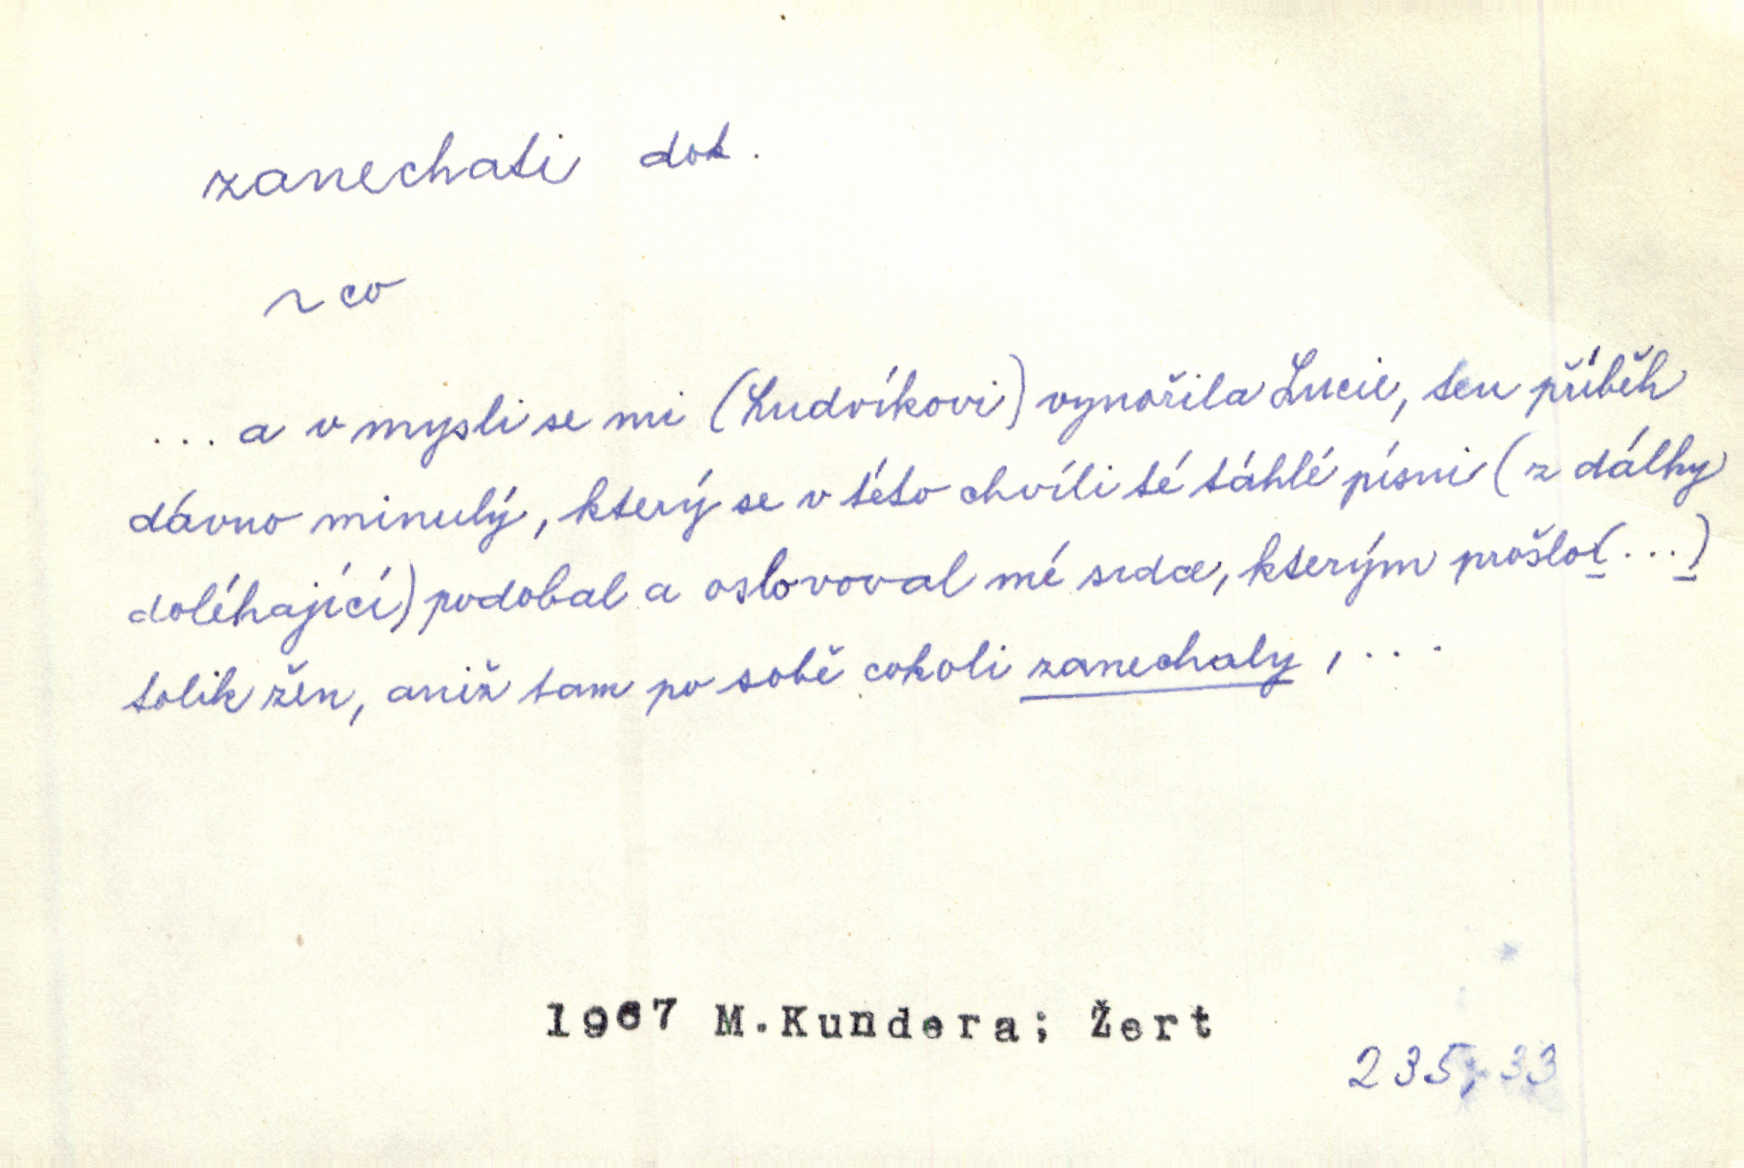 zanechati dok.
~ co
... a v mysli se mi (Ludvíkovi) vynořila Lucie, ten příběh
dávno minulý, který se v této chvíli té táhlé písni (z dálky
doléhající) podobal a oslovoval mé srdce, kterým prošlo (...)
tolik žen, aniž tam po sobě cokoli zanechaly, ...
1967 M.Kundera; Žert
235, 33